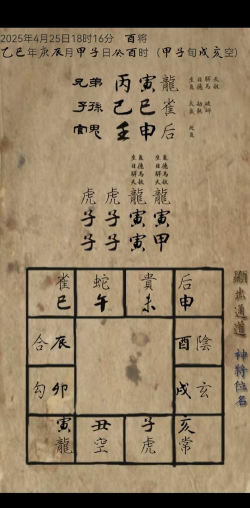 2025年4月25日18时16分 酉将
乙巳年庚辰月甲子日癸酉时（甲子旬戌亥空）
兄弟丙寅龍
子孫己巳雀
官鬼壬申后
虎虎龍龍
子子寅寅
子子寅甲
雀蛇貴后
巳午未申
合辰酉陰
勾卯戌玄
寅丑子亥
龍空虎常